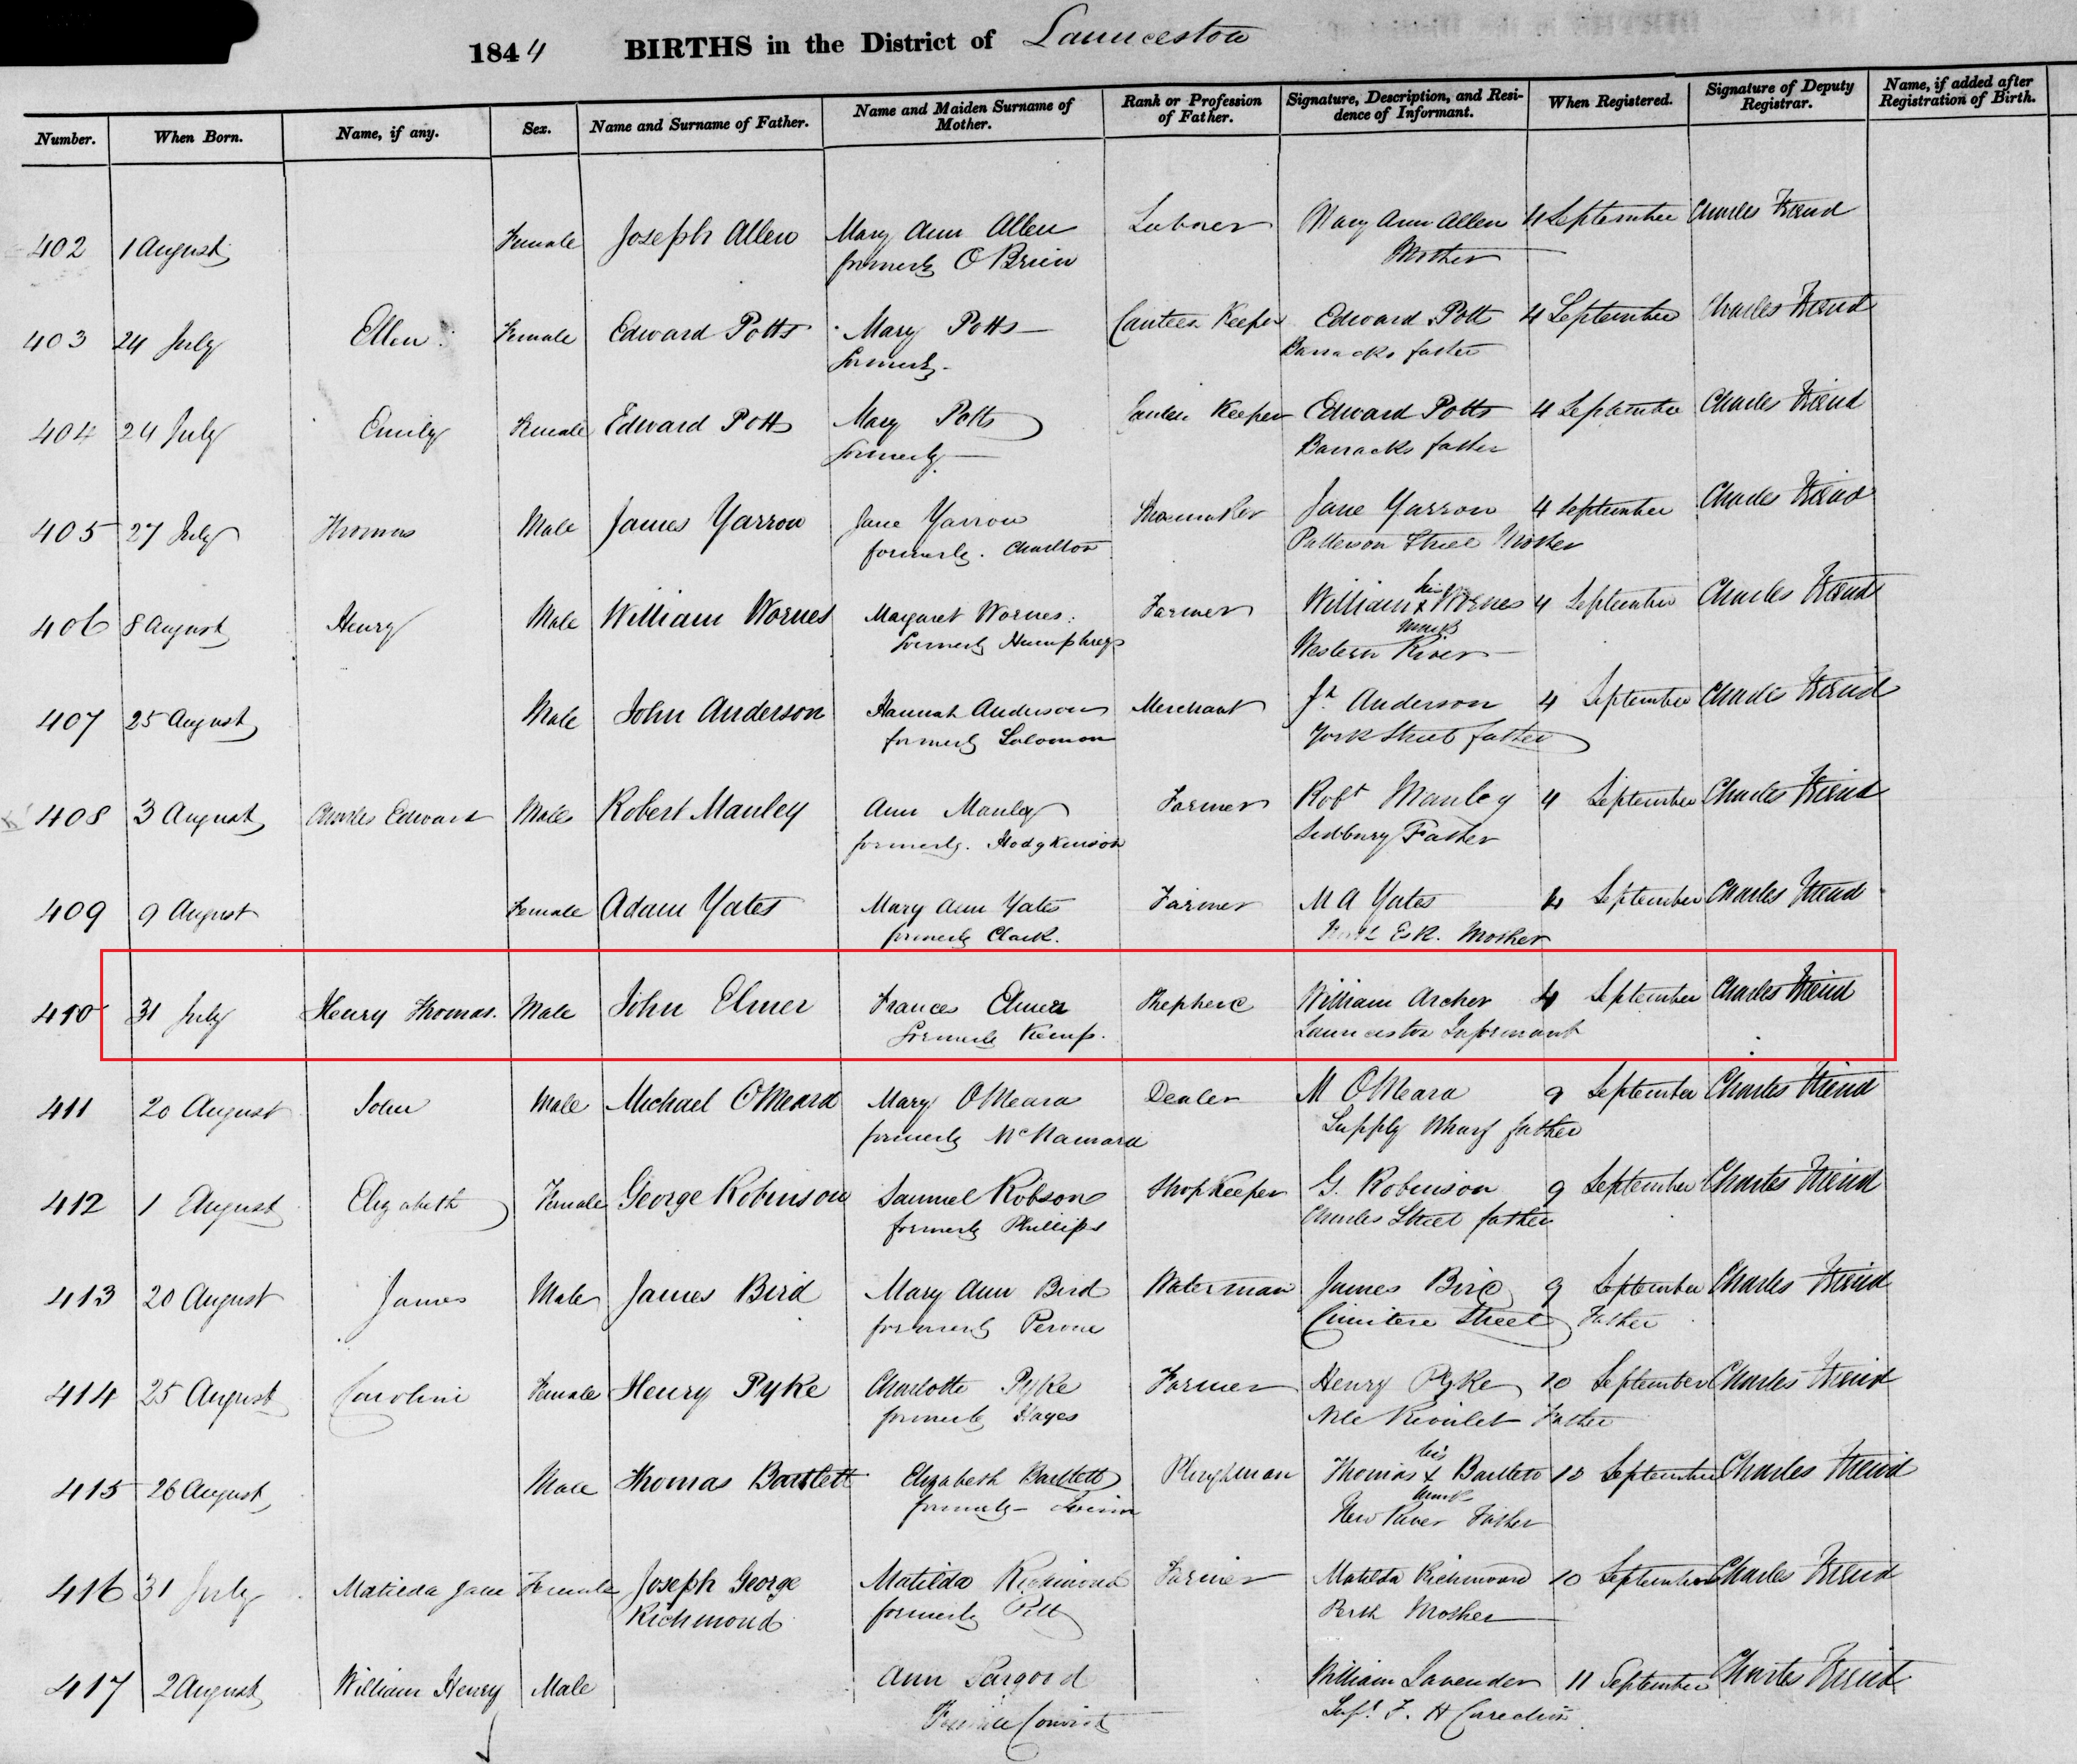 1844 BIRTHS in the District of Launceston
Number. When Born. Name, if any. Sex. Name and Surname of Father. Name and Maiden Surname of Mother. Rank or Profession of Father. Signature, Description, and Residence of Informant. When Registered. Signature of Deputy Registrar. Name, if added after Registration of Birth.
402 1 August Female Joseph Allen Mary Ann Allen Labourer Mary Ann Allen 4 September Charles Friend
formerly O Brien Mother
403 24 July Ellen Female Edward Potts Mary Potts Canteen Keeper Edward Potts 4 September Charles Friend
formerly Barracks father
404 24 July Emily Female Edward Potts Mary Potts Canteen Keeper Edward Potts 4 September Charles Friend
formerly Barracks father
405 27 July Thomas Male James Yarrow Jane Yarrow Shoemaker Jane Yarrow 4 September Charles Friend
formerly Charlton Patterson Street Mother
406 8 August Henry Male William Wornes Margaret Wornes Farmer William his x mark Wornes 4 September Charles Friend
formerly Humphreys Western River
407 25 August Male John Anderson Hannah Anderson Merchant Jn Anderson 4 September Charles Friend
formerly Solomon York Street father
408 3 August Charles Edward Male Robert Manley Ann Manley Farmer Robt Manley 4 September Charles Friend
formerly Hodgkinson Sidbury Father
409 9 August Female Adam Yates Mary Ann Yates Farmer M A Yates 4 September Charles Friend
formerly Clark. Esk. Mother
410 31 July Henry Thomas. Male John Elmer Frances Elmer Shepherd William Archer 4 September Charles Friend
formerly Kemp. Launceston Informant
411 20 August John Male Michael O'Meara Mary O'Meara Dealer M O'Meara 9 September Charles Friend
formerly McNamara Supply Wharf father
412 1 August Elizabeth Female George Robinson Samuel Robson Shop Keeper G. Robinson 9 September Charles Friend
formerly Phillips Charles Street father
413 20 August James Male James Bird Mary Ann Bird Waterman James Bird 9 September Charles Friend
formerly Cimitere Street Father
414 25 August Caroline Female Henry Pyke Charlotte Pyke Farmer Henry Pyke 10 September Charles Friend
formerly Hayes Nile Rivulet Father
415 26 August Male Thomas Bartlett Elizabeth Bartlett Ploughman Thomas his x mark Bartlett 10 September Charles Friend
formerly New River Father
416 31 July Matilda Jane Female Joseph George Richmond Matilda Richmond Farmer Matilda Richmond 10 September Charles Friend
formerly Pitt Perth Mother
417 2 August William Henry Male Ann Pargood William Lavender 11 September Charles Friend
Female Convict Supt. F. H